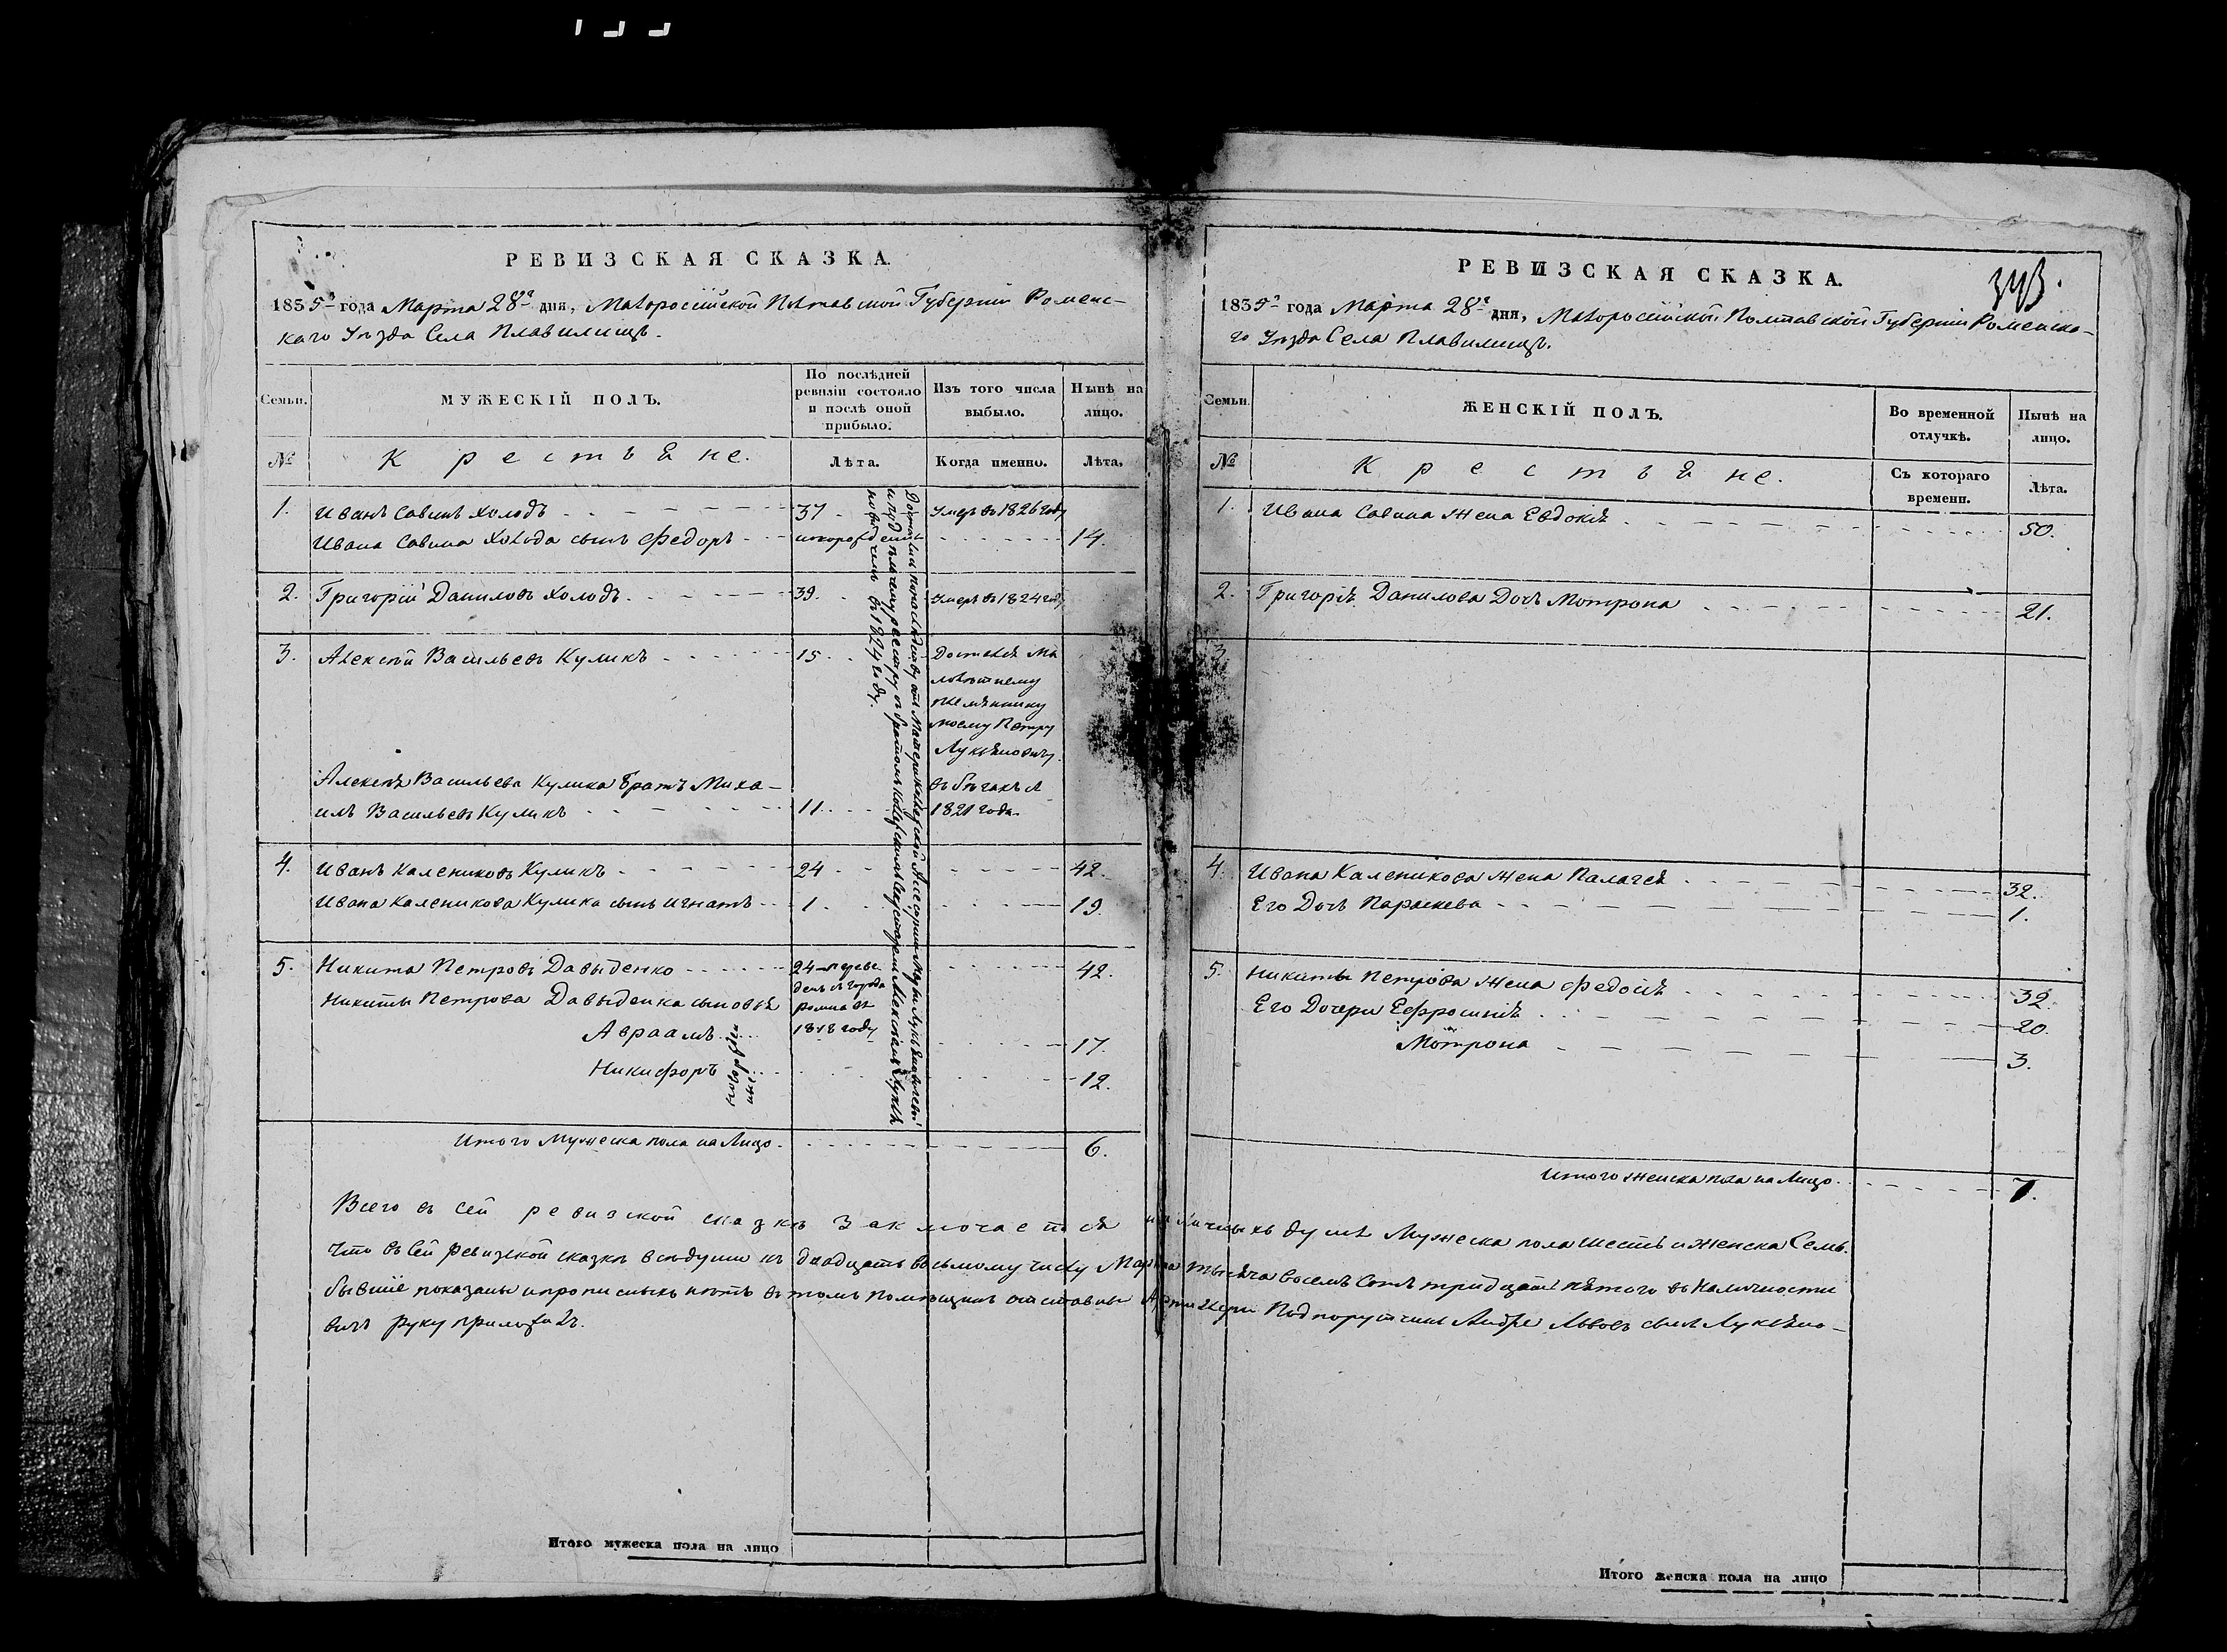 РЕВИЗСКАЯ СКАЗКА.
1835го года Марта 28го дня, Малоросійской Полтавской Губерніи Роменс-
каго Уѣзда Села Плавилищъ.
Семьи.
МУЖЕСКІЙ ПОЛЪ.
По послѣдней ревизіи состояло и послѣ оной прибыло.
Изъ того числа выбыло.
Нынѣ на лицо.
№
Крестьяне.
Лѣта.
Когда именно.
Лѣта.
1. Иванъ Савинъ Холодъ 37. Умеръ въ 1826 году
Ивана Савина Холода сынъ Федоръ новорожденъ 14.
2. Григорій Даниловъ Холодъ 39. Умеръ въ 1824 году
3. Алексѣй Васильевъ Куликъ 15. Достался Ма
лолѣтнему
племяннику
моему Петру
Лукьяновичу
Алексѣя Васильева Кулика братъ Миха-
илъ Васильевъ Куликъ 11. въ бѣгахъ съ
1821 года.
4. Иванъ Калениковъ Куликъ 24 42.
Ивана Каленикова Кулика сынъ Игнатъ 1. 19.
5. Никита Петровъ Давыденко 24 переве
денъ съ города
Ромна въ
1818 году 42.
Никиты Петрова Давыденка сыновья
Авраамъ 17.
Никифоръ 12.
новорожден
Достались по наслѣдству отъ Матери Коллежской Асесорши Марьи Лукьяновичевой
и по раздѣльному реестру съ братомъ Коллежскимъ
въ 1824 году.
Итого Мужеска пола на Лицо 6.
РЕВИЗСКАЯ СКАЗКА.
343.
1835го года Марта 28го дня, Малоросійской Полтавской Губерніи Роменска-
го Уѣзда Села Плавилищъ.
Семьи.
ЖЕНСКІЙ ПОЛЪ.
Во временной отлучкѣ.
Нынѣ на лицо.
№
Крестьяне.
Съ котораго времени.
Лѣта.
1. Ивана Савина жена Евдокія 50.
2. Григорія Данилова Дочь Мотрона 21.
3
4. Ивана Каленикова жена Палагея 32.
Его Дочь Параскева 1.
5. Никиты Петрова жена Федосія 32.
Его Дочери Ефросинія 20.
Мотрона 3.
Итого женска пола на Лицо 7.
Всего въ сей ревизской сказкѣ заключается наличныхъ душъ Мужеска пола шесть и женска Семь.
Что въ Сей ревизской сказкѣ всѣ души къ двадцать восьмому числу Марта тысяча восемь сотъ тридцать пятого въ наличности
бывшіе показаны и прописныхъ нѣтъ въ томъ помѣщикъ отставный Артилеріи Подпоручикъ Андрей Львовъ сынъ Лукьяно-
вичъ руку приложилъ.
Итого мужеска пола на лицо
Итого женска пола на лицо